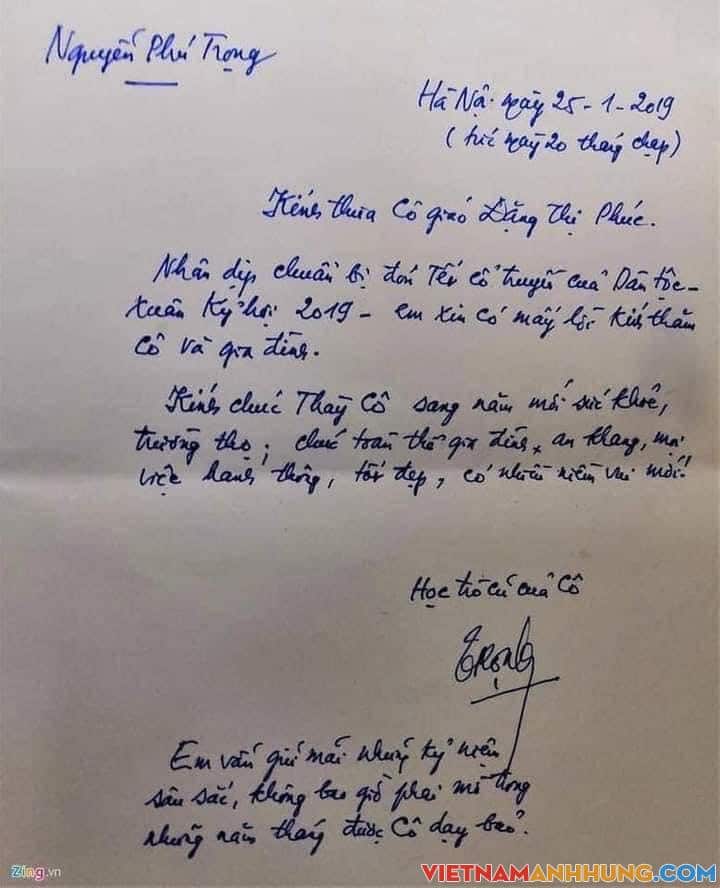 Nguyễn Phú Trọng
Hà Nội ngày 25-1-2019
(tức ngày 20 tháng chạp)
Kính thưa Cô giáo Đặng Thị Phúc.
Nhân dịp chuẩn bị đón Tết cổ truyền của Dân tộc -
Xuân Kỷ hợi 2019 - em xin có mấy lời kính thăm
Cô và gia đình.
Kính chúc Thày Cô sang năm mới sức khoẻ,
trường thọ; chúc toàn thể gia đình an khang, mọi
việc hanh thông, tốt đẹp, có nhiều niềm vui mới!
Học trò cũ của Cô
Trọng
Em vẫn giữ mãi những kỷ niệm
sâu sắc, không bao giờ phai mờ trong
những năm tháng được Cô dạy bảo.
Zing.vn
VIETNAMANHHUNG.COM